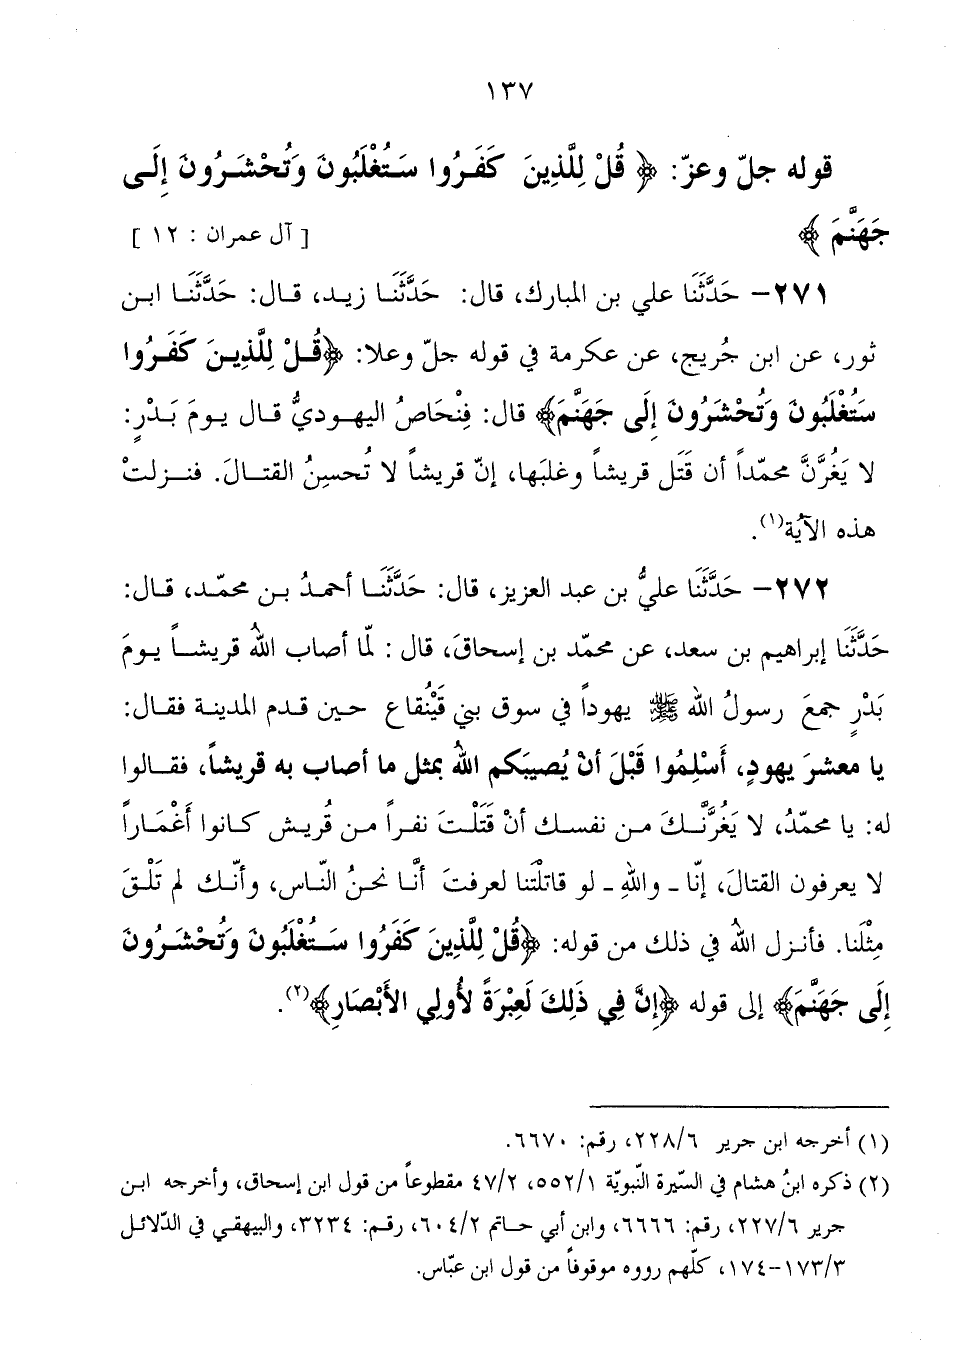 ١٣٧
قوله جلّ وعزّ: ﴿ قُلْ لِلَّذِينَ كَفَرُوا سَتُغْلَبُونَ وَتُحْشَرُونَ إِلَى
جَهَنَّمَ ﴾ [ آل عمران : ١٢ ]
٢٧١– حَدَّثَنَا علي بن المبارك، قال: حَدَّثَنَا زيد، قال: حَدَّثَنَا ابن
ثور، عن ابن جُريج، عن عكرمة في قوله جلّ وعلا: ﴿قُلْ لِلَّذِينَ كَفَرُوا
سَتُغْلَبُونَ وَتُحْشَرُونَ إِلَى جَهَنَّمَ﴾ قال: فِنْحَاصُ اليهوديُّ قال يومَ بَدْرٍ:
لا يَغُرَّنَّ محمّداً أن قَتَل قريشاً وغلبَها، إنّ قريشاً لا تُحسِنُ القتالَ. فنزلتْ
هذه الآية(١).
٢٧٢– حَدَّثَنَا عليُّ بن عبد العزيز، قال: حَدَّثَنَا أحمدُ بن محمّد، قال:
حَدَّثَنَا إبراهيم بن سعد، عن محمّد بن إسحاقَ، قال : لمّا أصاب اللهُ قريشاً يومَ
بَدْرٍ جمعَ رسولُ الله ﷺ يهوداً في سوق بني قَيْنُقاع حين قدم المدينة فقال:
يا معشرَ يهودٍ، أَسْلِمُوا قَبْلَ أنْ يُصيبَكم اللهُ بمثل ما أصاب به قريشاً، فقالوا
له: يا محمّدُ، لا يَغُرَّنَّكَ من نفسك أنْ قَتَلْتَ نفراً من قُريش كانوا أَغْمَاراً
لا يعرفون القتالَ، إنّا ـ واللهِ ـ لو قاتلْتَنا لعرفتَ أنَّا نحنُ النّاس، وأنّك لم تَلْقَ
مِثْلَنا. فأنزل اللهُ في ذلك من قوله: ﴿قُلْ لِلَّذِينَ كَفَرُوا سَتُغْلَبُونَ وَتُحْشَرُونَ
إِلَى جَهَنَّمَ﴾ إلى قوله ﴿إِنَّ فِي ذَلِكَ لَعِبْرَةً لأُولِي الأَبْصَارِ﴾(٢).
(١) أخرجه ابن جرير ٢٢٨/٦، رقم: ٦٦٧٠.
(٢) ذكره ابنُ هشام في السّيرة النّبويّة ٥٥٢/١، ٤٧/٢ مقطوعاً من قول ابن إسحاق، وأخرجه ابن
جرير ٢٢٧/٦، رقم: ٦٦٦٦، وابن أبي حاتم ٦٠٤/٢، رقم: ٣٢٣٤، والبيهقي في الدّلائل
١٧٣/٣–١٧٤، كلّهم رووه موقوفاً من قول ابن عبّاس.